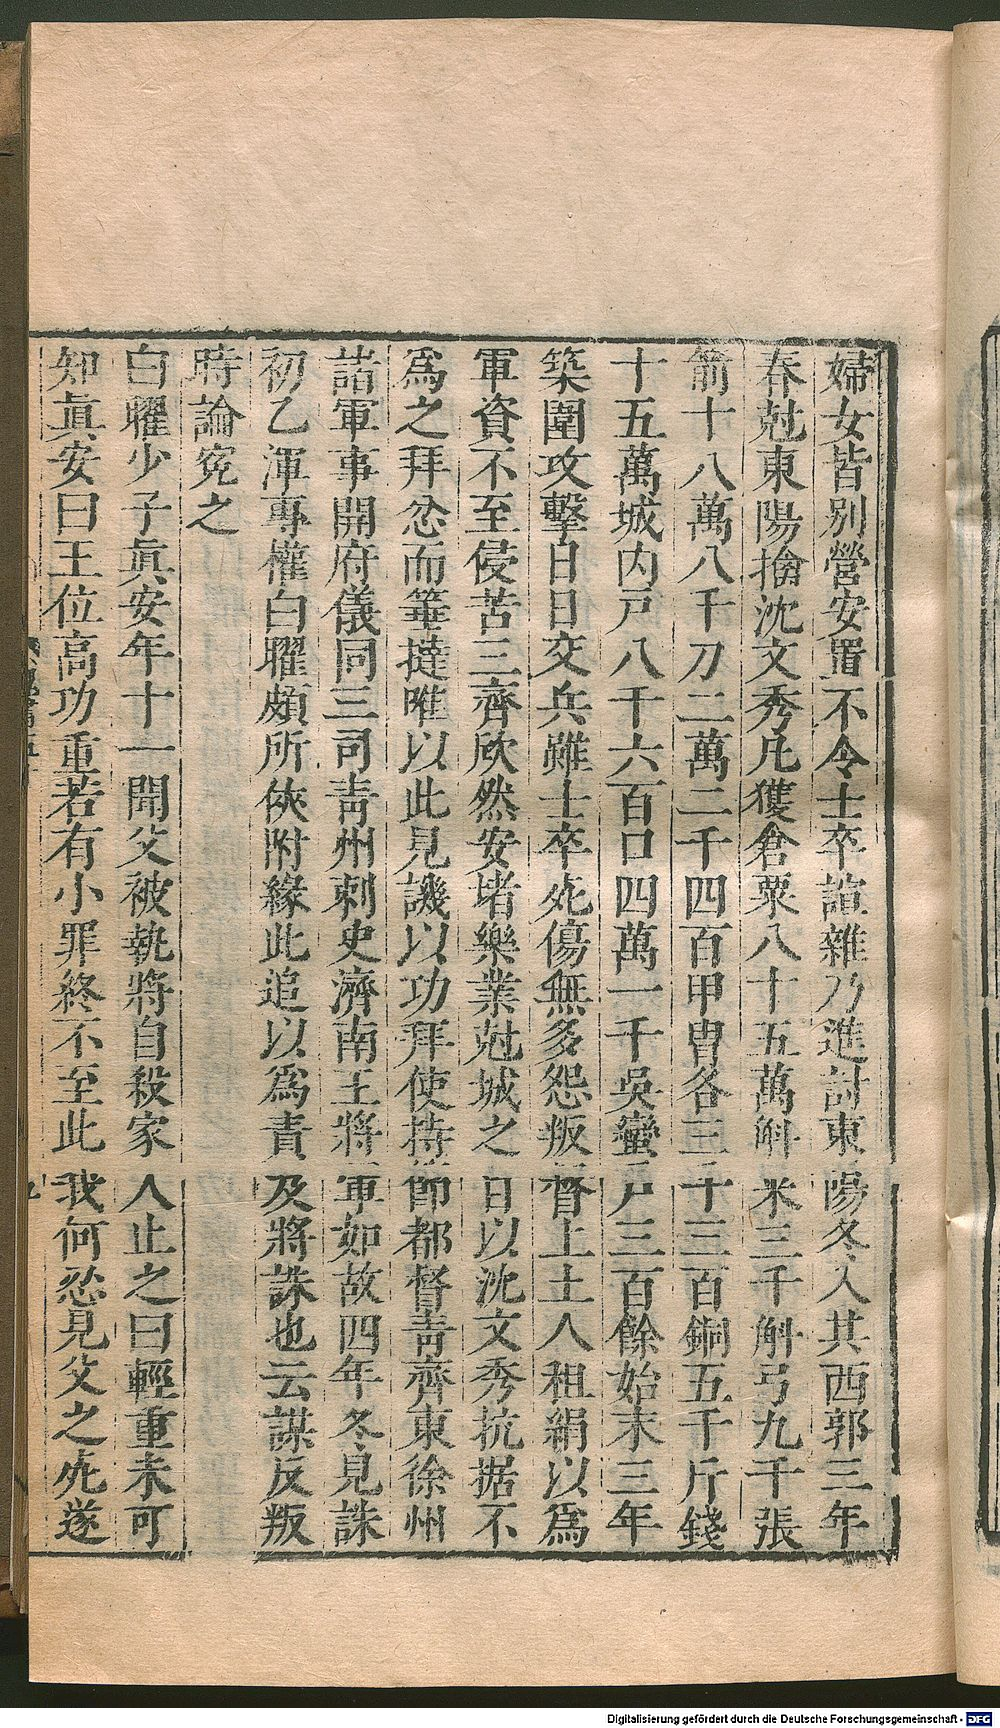 婦女皆別營安置不令士卒諠雜乃進討東陽冬入其西郭三年
春尅東陽擒沈文秀凡獲倉粟八十五萬斛米三千斛弓九千張
箭十八萬八千刀二萬二千四百甲冑各三千三百銅五千斤錢
十五萬城内戸八千六百口四萬一千吳蠻戸三百餘始末三年
築圍攻擊日日交兵雖士卒死傷無多怨叛督上土人租絹以爲
軍資不至侵苦三齊欣然安堵樂業尅城之日以沈文秀抗据不
爲之拜忿而箠撻唯以此見譏以功拜使持節都督青齊東徐州
諸軍事開府儀同三司青州刺史濟南王將軍如故四年冬見誅
初乙渾專權白曜頗所俠附緣此追以爲責及將誅也云謀反叛
時論寃之
白曜少子眞安年十一聞父被執將自殺家人止之曰輕重未可
知眞安曰王位高功重若有小罪終不至此我何忍見父之死遂
Digitalisierung gefördert durch die Deutsche Forschungsgemeinschaft - DFG